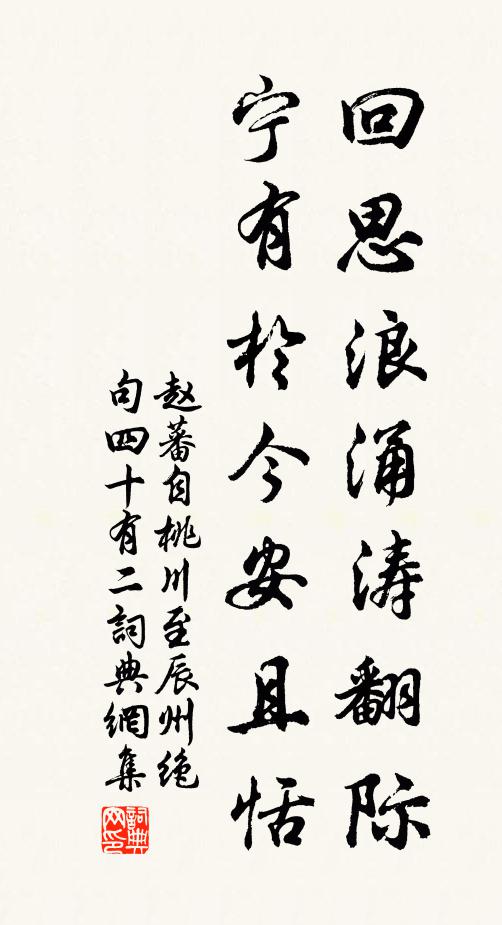 回思浪涌涛翻际
宁有於今安且恬
赵蕃自桃川至辰州绝
句四十有二詞典網集
詞典网印